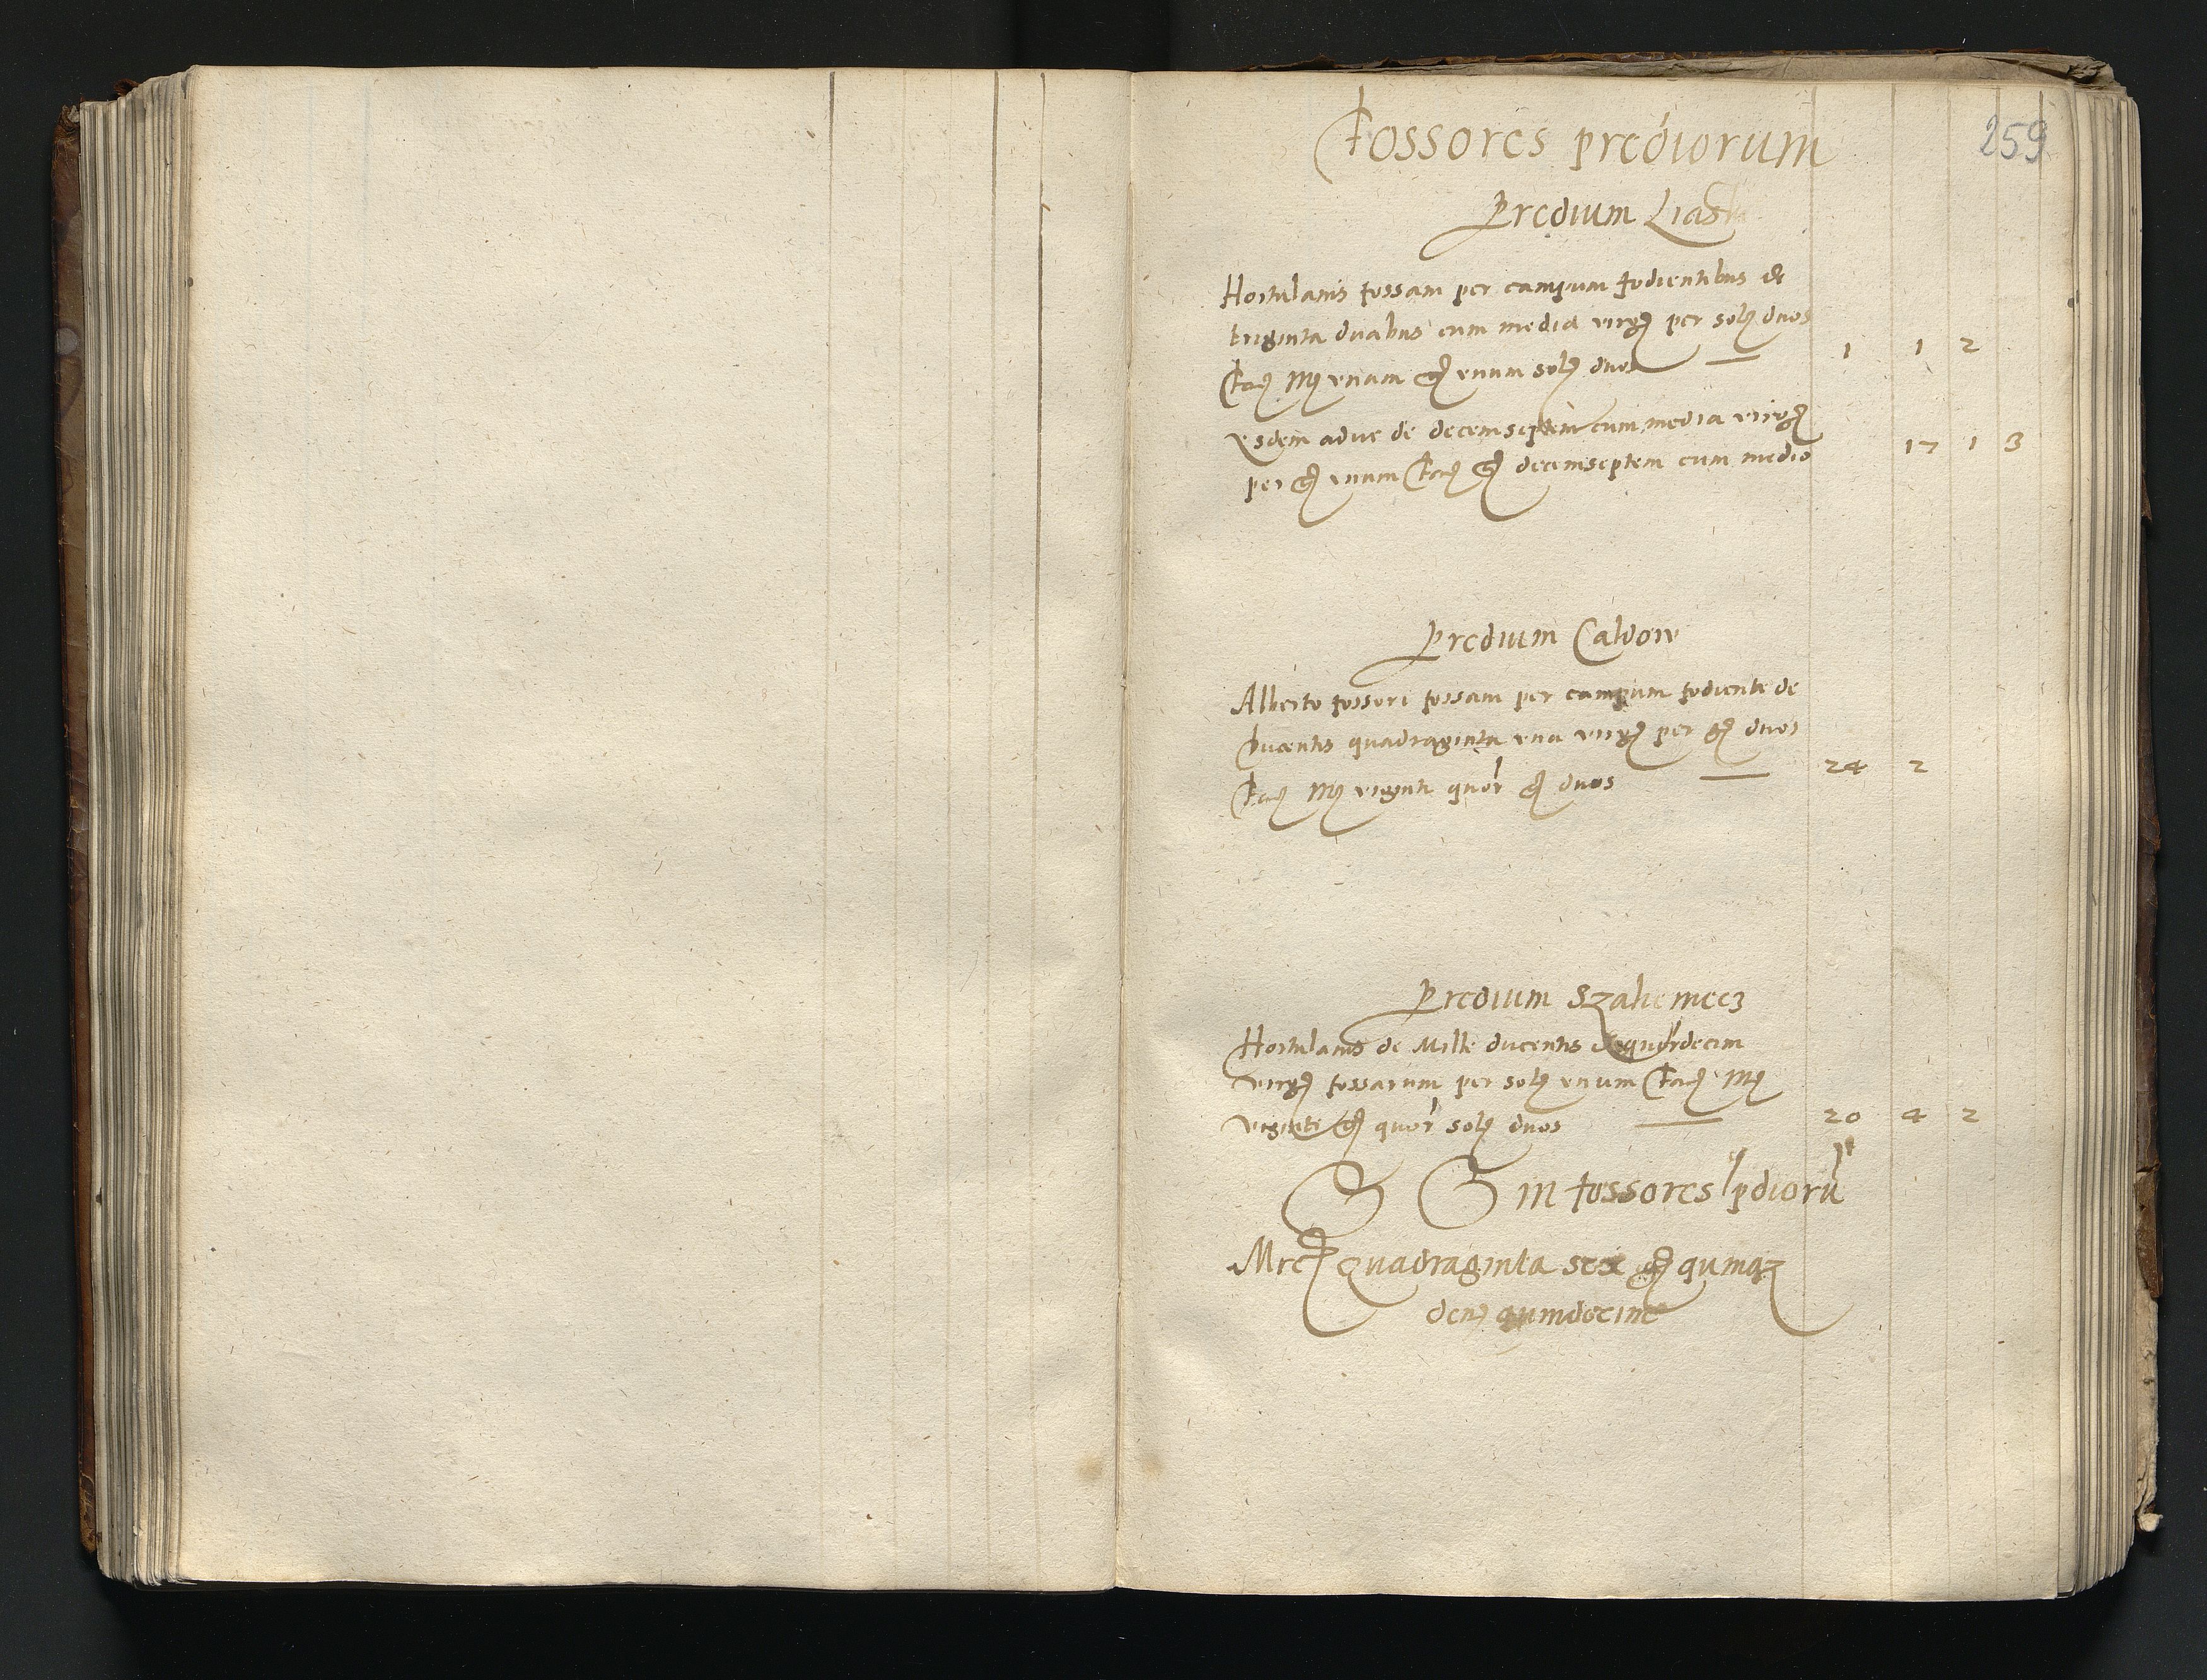 259
Fossores prediorum
Predium Liaski
Hortulanis fossam per campum fodientibus de
triginta duabus cum media virg per sol duos
fac Mr unam gr unum sol duos — 1 1 2
Eisdem adue de decemseptem cum media virg
per gr unum fac gr decemseptem cum medio 17 1 3
Predium Caldow
Alberto fossori fossam per campum fodienti de
ducentis quadraginta una virg per gr duos
fac Mr viginti quor gr duos — 24 2
Predium Szalie mecz
Hortulanis de Mille ducentis quordecim
virg fossarum per sol unum fac Mr
viginti gr quor sol duos — 20 4 2
in fossores pdioru
Mrc quadraginta sex gr quinq
den quindecim